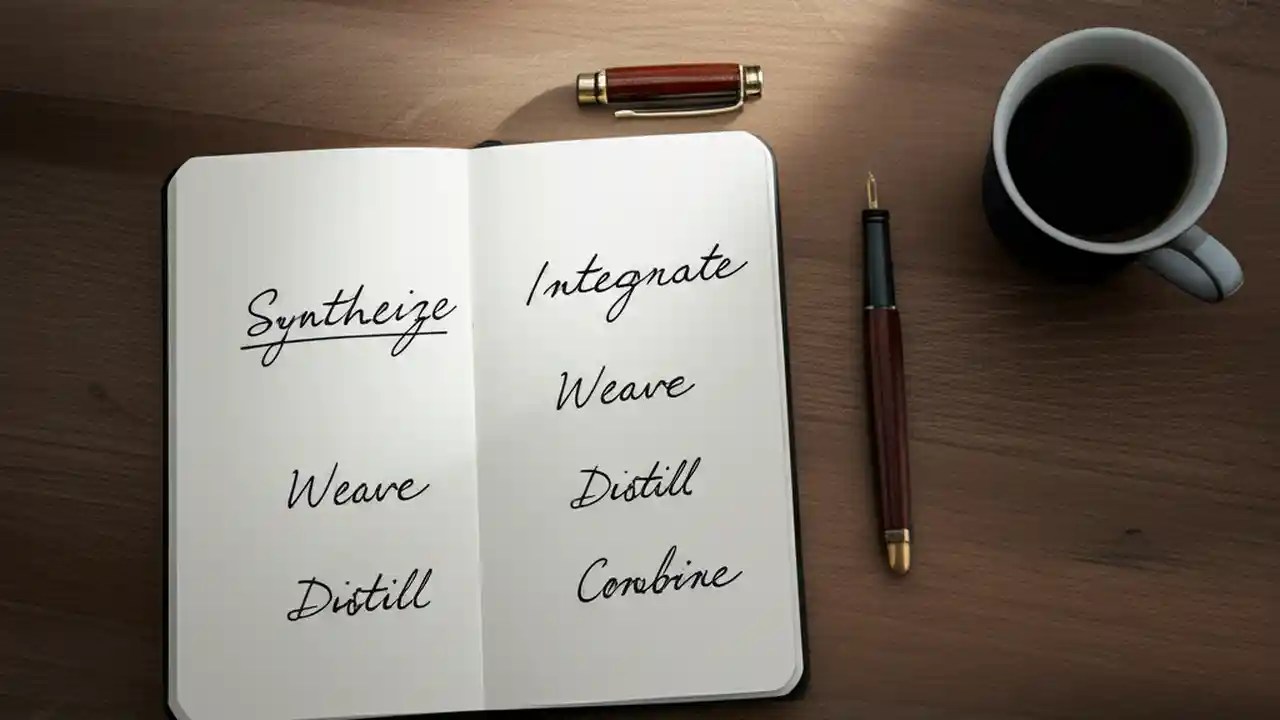 Syntheize
Weave
Distill
Integnate
Weave
Distill
Combine